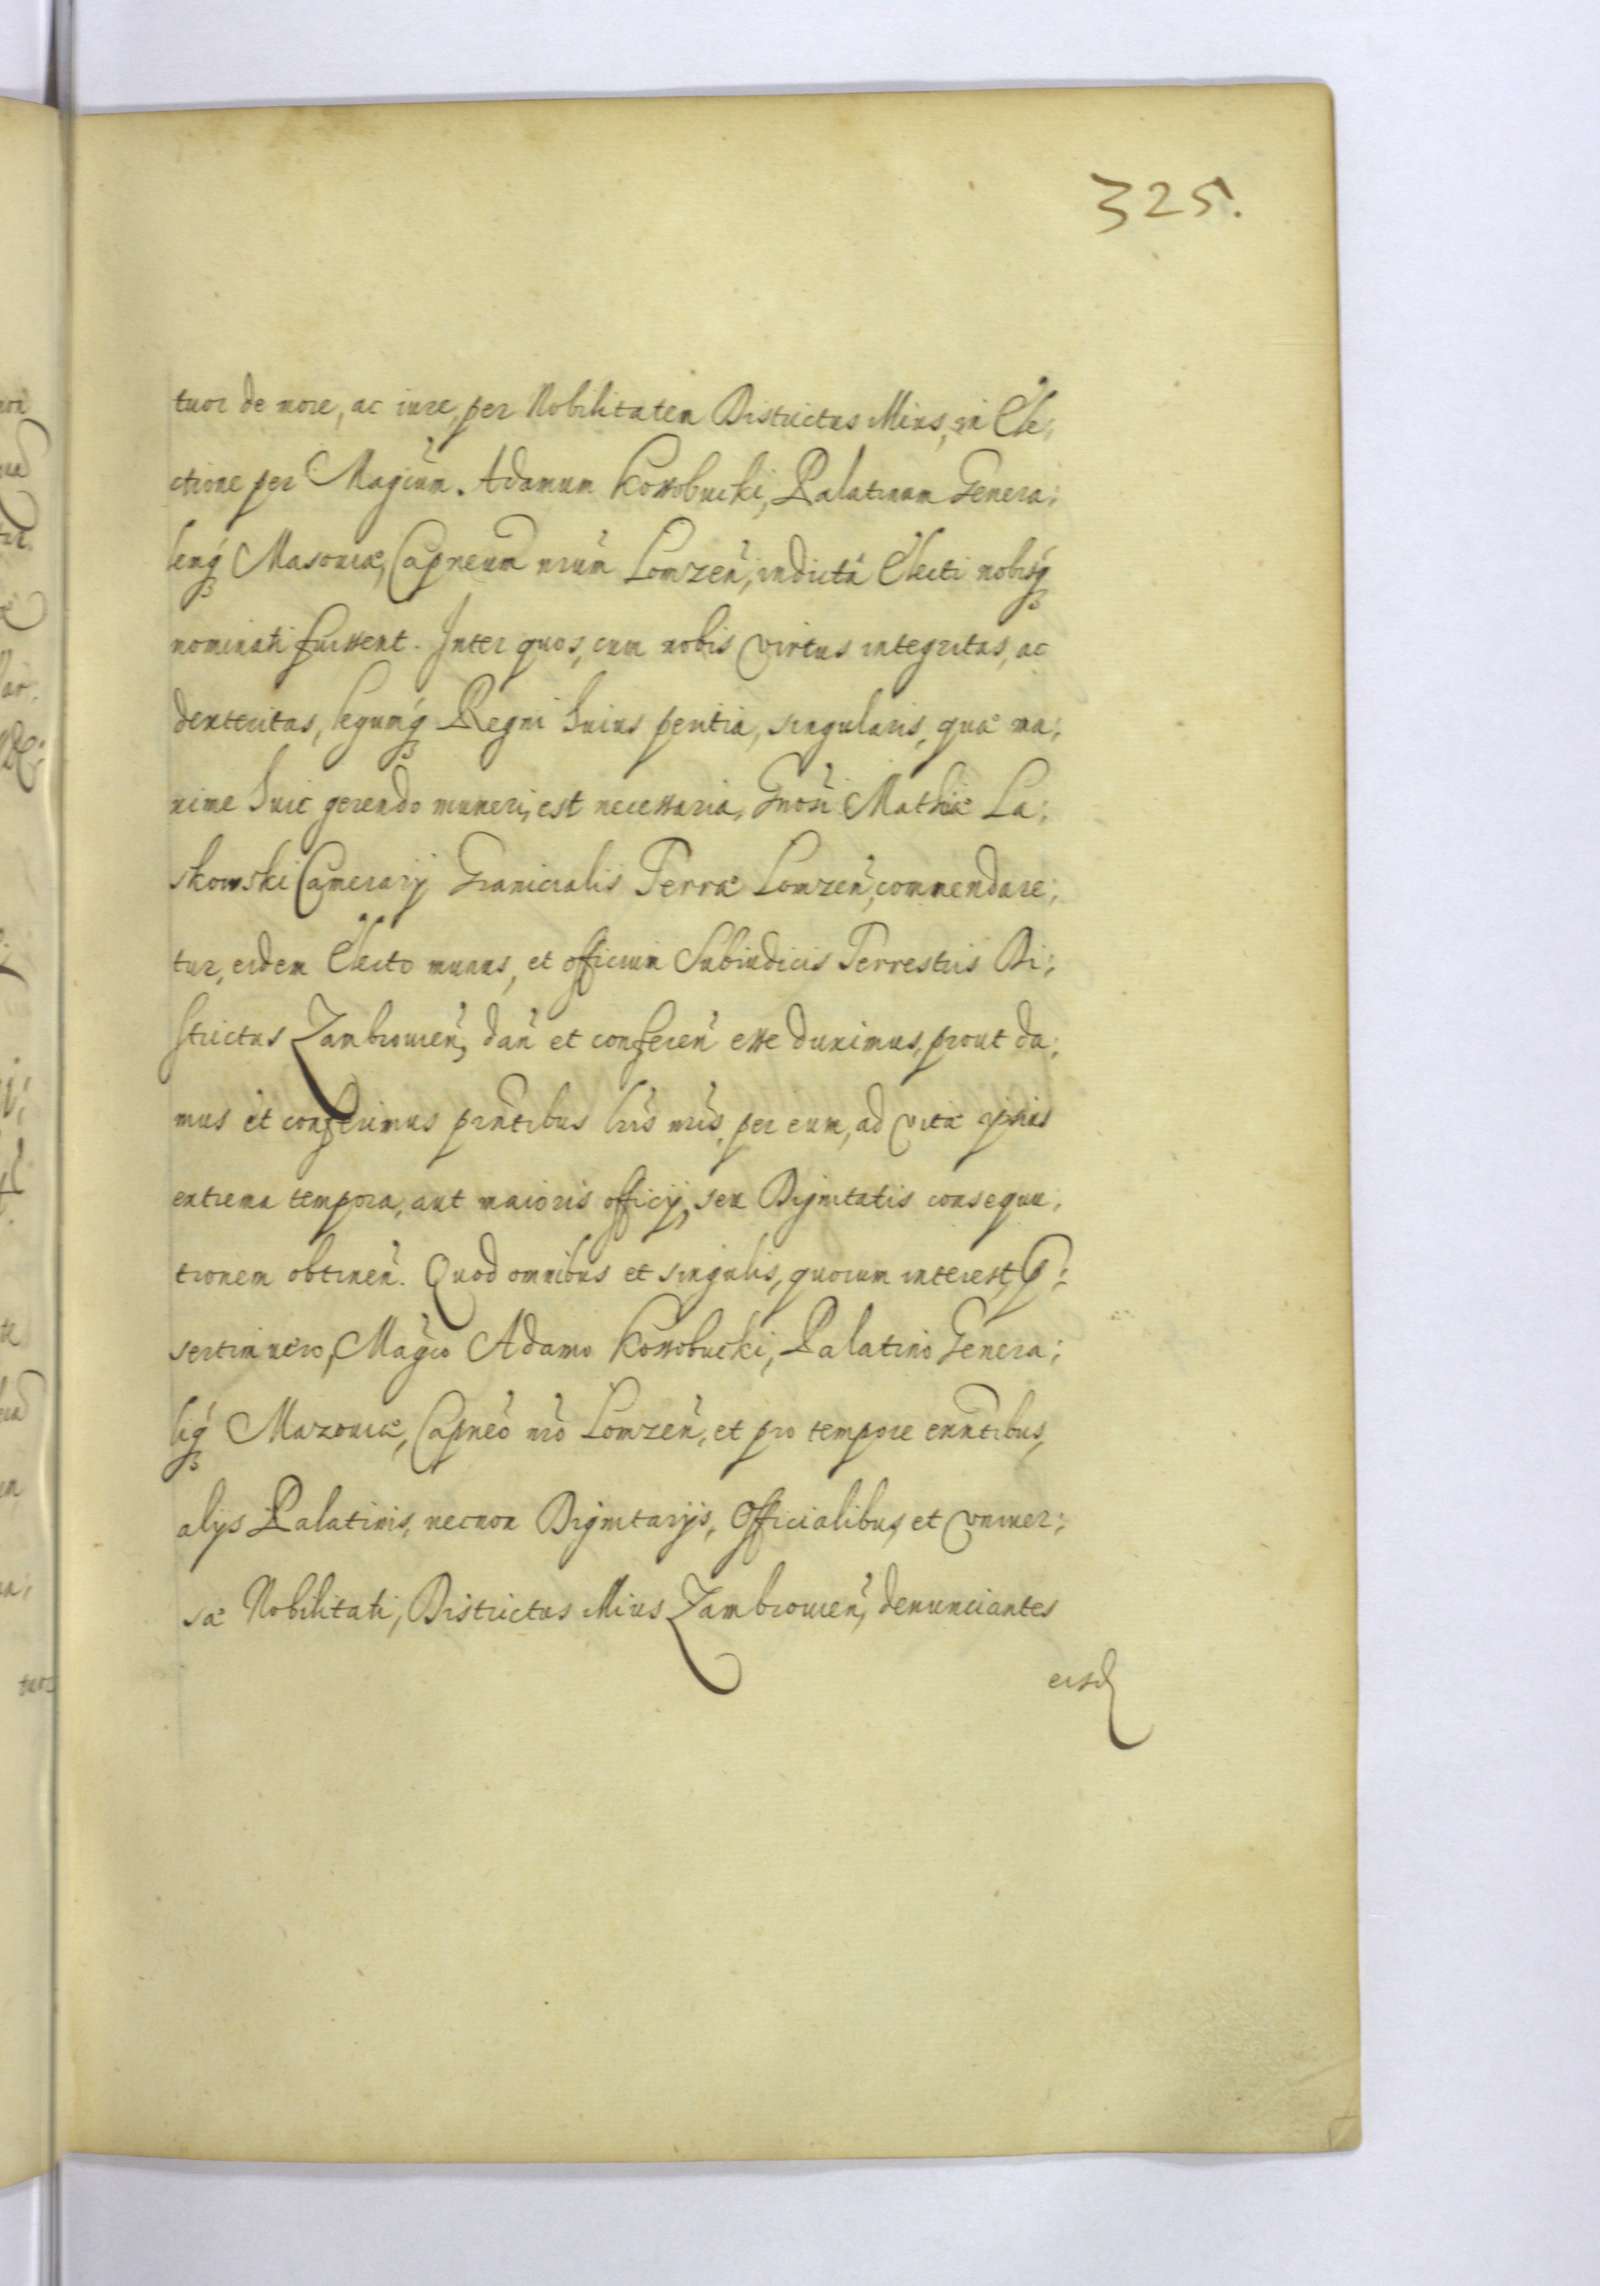 325.
tuor de more, ac iure, per Nobilitatem Districtus illius, in Ele;
ctione per Magcum. Adamum Kossobucki, Palatinum Genera;
lemq́ Masoviæ, Capneum nrum Lomzen̄, indictā Electi nobisq́
nominati fuissent. Inter quos, cum nobis virtus integritas, ac
dexteritas, legumq́ Regni huius peritia, singularis, quæ ma;
xime huic gerendo muneri, est necessaria, Gnosi Mathiæ La;
skowski Camerarij Granicialis Terræ Lomzen̄, commendare;
tur, eidem Electo munus, et officium Subiudicis Terrestris Di;
strictus Zambrowien̄, dan̄ et conferen̄ esse duximus, prout da;
mus et conferimus pn̄tibus lr̄is nr̄is, per eum, ad vitæ ipsius
extrema tempora, aut maioris officij, seu Dignitatis consequu;
tionem obtinen̄. Quod omnibus et singulis, quorum interest, p̄;
sertim vero, Magco Adamo Kossobucki, Palatino Genera;
liq́ Mazoviæ, Capneo nr̄o Lomzen̄, et pro tempore exn̄tibus,
alijs Palatinis, necnon Dignitarijs, Officialibus, et vniver;
sæ Nobilitati, Districtus illius Zambrowien̄, denunciantes
eisd